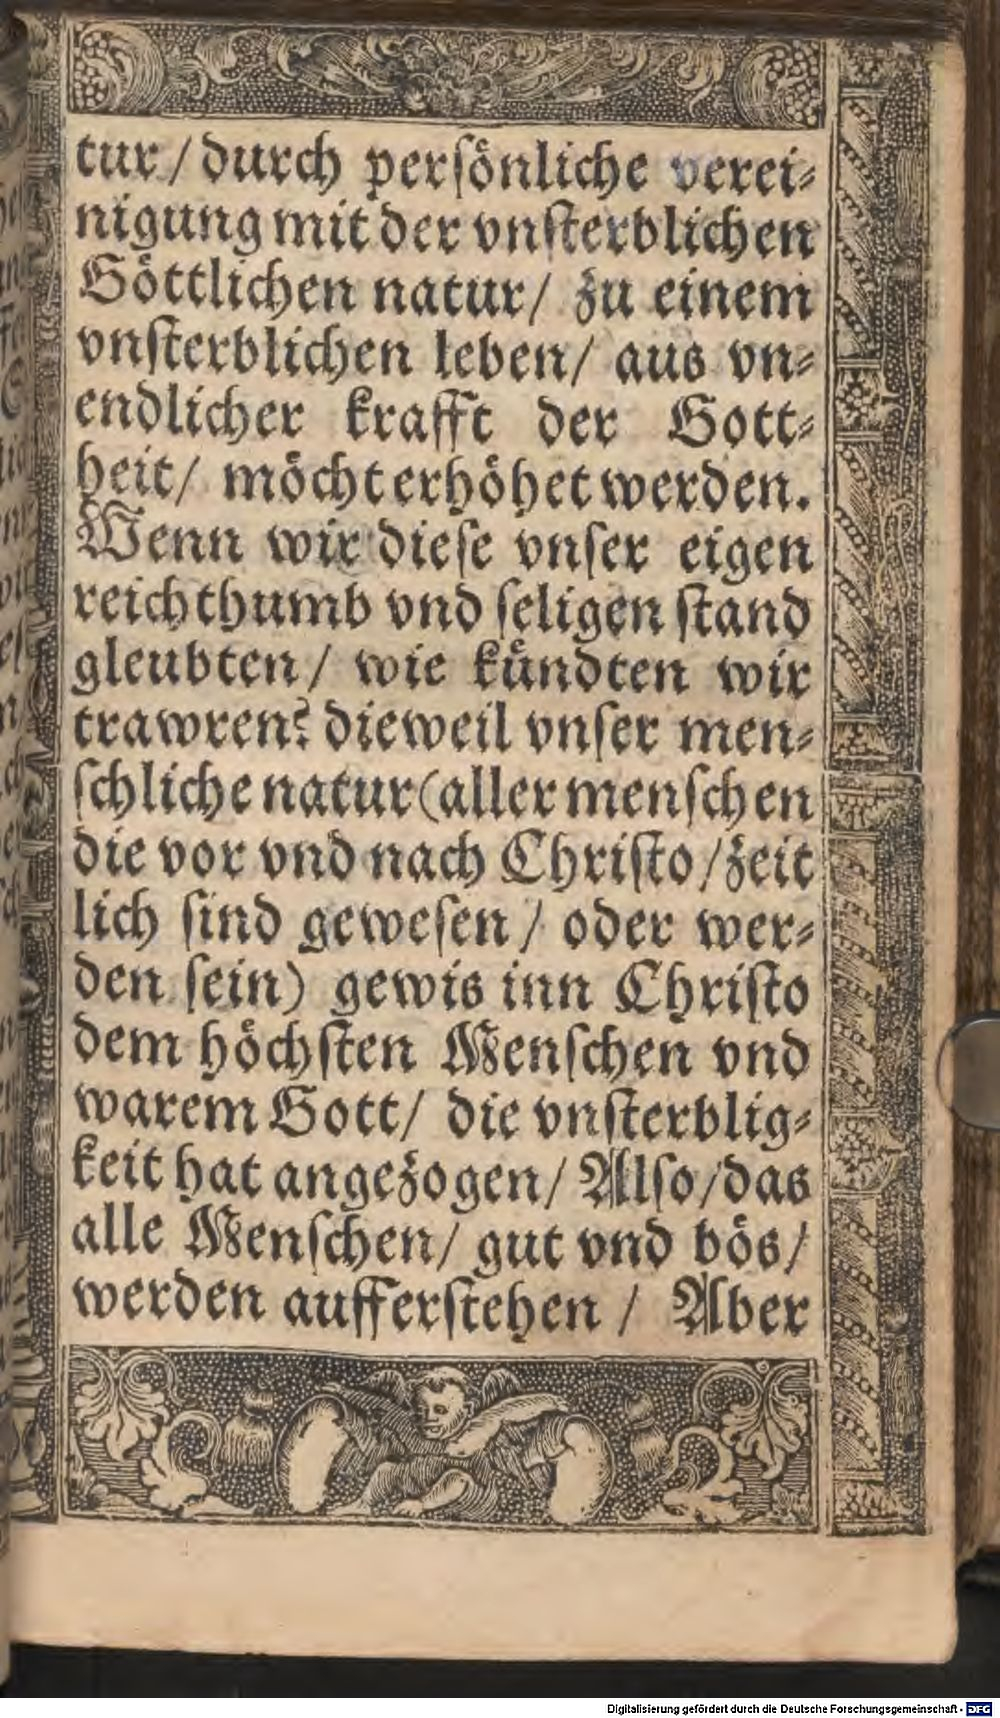 tur / durch persönliche verei⸗
nigung mit der vnsterblichen
Göttlichen natur / zu einem
vnsterblichen leben / aus vn⸗
endlicher krafft der Gott⸗
heit / möcht erhöhet werden.
Wenn wir diese vnser eigen
reichthumb vnd seligen stand
gleubten / wie kündten wir
trawren? dieweil vnser men⸗
schliche natur (aller menschen
die vor vnd nach Christo / zeit
lich sind gewesen / oder wer⸗
den sein) gewis inn Christo
dem höchsten Menschen vnd
warem Gott / die vnsterblig⸗
keit hat angezogen / Also / das
alle Menschen / gut vnd bös /
werden aufferstehen / Aber
Digitalisierung gefördert durch die Deutsche Forschungsgemeinschaft - DFG